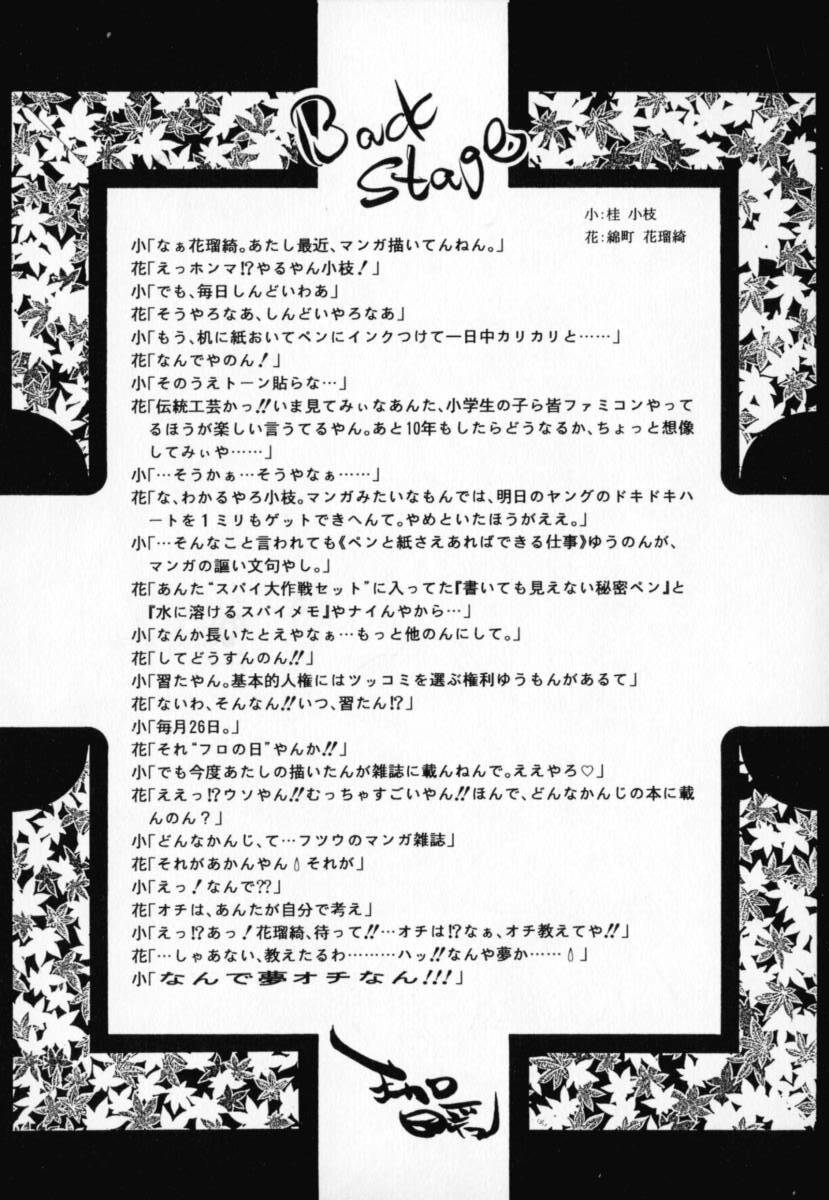 Back
Stage
小：桂 小枝
花：綿町 花瑠綺
小「なぁ花瑠綺。あたし最近、マンガ描いてんねん。」
花「えっホンマ!?やるやん小枝！」
小「でも、毎日しんどいわあ」
花「そうやろなあ、しんどいやろなあ」
小「もう、机に紙おいてペンにインクつけて一日中カリカリと……」
花「なんでやのん！」
小「そのうえトーン貼らな…」
花「伝統工芸かっ!!いま見てみぃなあんた、小学生の子ら皆ファミコンやって
るほうが楽しい言うてるやん。あと10年もしたらどうなるか、ちょっと想像
してみぃや……」
小「…そうかぁ…そうやなぁ……」
花「な、わかるやろ小枝。マンガみたいなもんでは、明日のヤングのドキドキハ
ートを1ミリもゲットできへんて。やめといたほうがええ。」
小「…そんなこと言われても《ペンと紙さえあればできる仕事》ゆうのんが、
マンガの謳い文句やし。」
花「あんた“スパイ大作戦セット”に入ってた『書いても見えない秘密ペン』と
『水に溶けるスパイメモ』やナイんやから…」
小「なんか長いたとえやなぁ…もっと他のんにして。」
花「してどうすんのん!!」
小「習たやん。基本的人権にはツッコミを選ぶ権利ゆうもんがあるて」
花「ないわ、そんなん!!いつ、習たん!?」
小「毎月26日。」
花「それ“フロの日”やんか!!」
小「でも今度あたしの描いたんが雑誌に載んねんで。ええやろ♡」
花「ええっ!?ウソやん!!むっちゃすごいやん!!ほんで、どんなかんじの本に載
んのん？」
小「どんなかんじ、て…フツウのマンガ雑誌」
花「それがあかんやん それが」
小「えっ！なんで??」
花「オチは、あんたが自分で考え」
小「えっ!?あっ！花瑠綺、待って!!…オチは!?なぁ、オチ教えてや!!」
花「…しゃあない、教えたるわ………ハッ!!なんや夢か……」
小「なんで夢オチなん!!!」